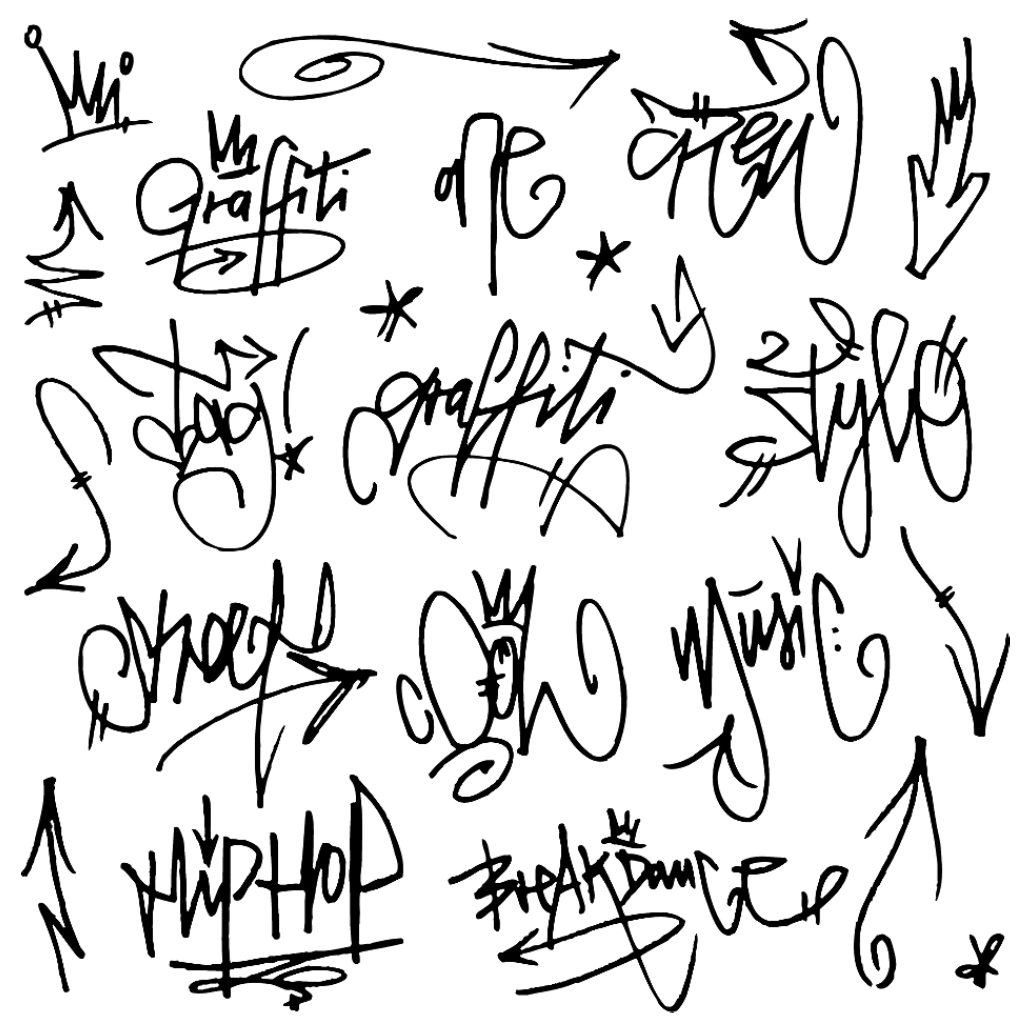 Graffiti
one
Crew
Tag
graffiti
Style
Street
Music
HipHop
BreakDance